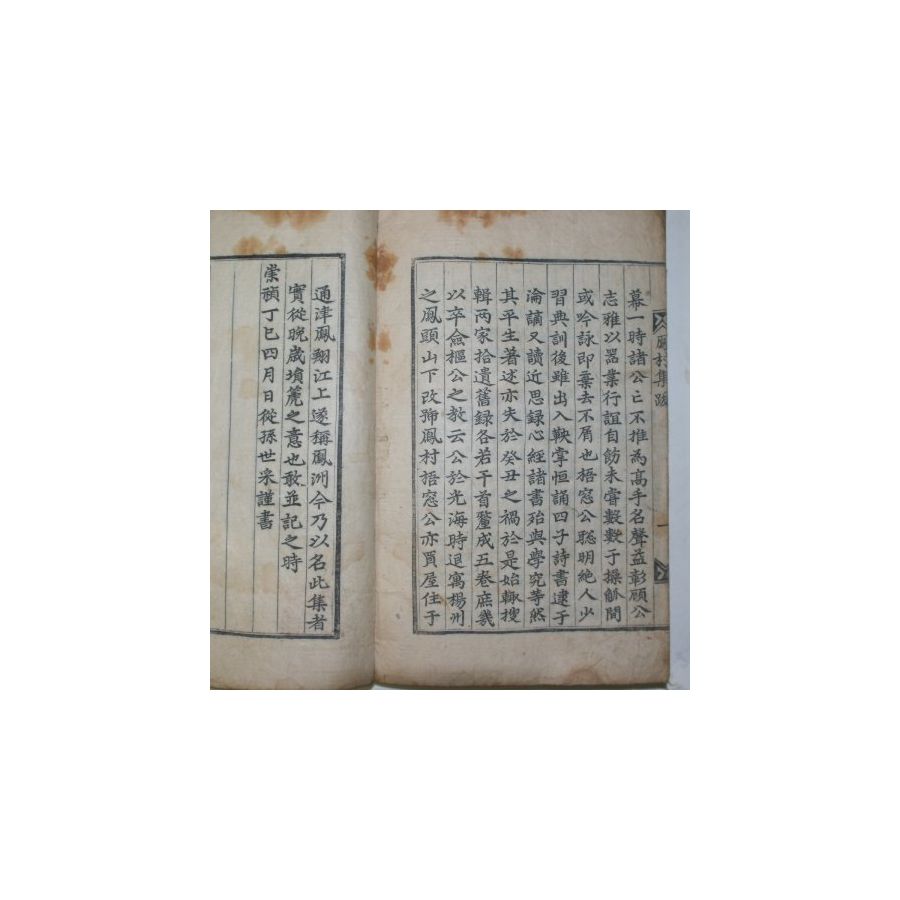 鳳村集跋
幕一時諸公亡不推為高手名聲益彰顧公
志雅以器業行誼自飭未嘗數數于操觚間
或吟詠即棄去不屑也梧窓公聦明絶人少
習典訓後雖出入鞅掌恒誦四子詩書逮于
淪謫又讀近思録心經諸書殆與學究等然
其平生著述亦失於癸丑之禍於是始輙搜
輯两家拾遺舊録各若干首釐成五卷庶羲
以卒僉樞公之教云公於光海時退寓楊州
之鳳頭山下改號鳳村梧窓公亦買屋住于
通津鳳翔江上遂稱鳳洲今乃以名此集者
實從晩歳塤箎之意也敢並記之時
崇禎丁巳四月日從孫世采謹書